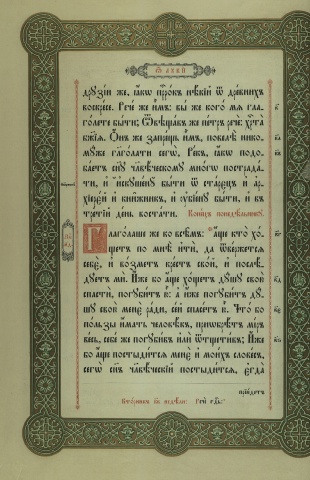 Ѿ луки
друзїи же, ꙗкѡ прⷪ҇рокъ нѣкїй ѿ древнихъ
воскресе. Рече же имъ: вы же кого мѧ гла-
голете быти; Ѿвѣщавъ же петръ рече: хрⷭ҇та
бж҃їѧ. Онъ же запрещь имъ, повелѣ нико-
муже глаголати сегѡ̀. Рекъ, ꙗкѡ подо-
баетъ сн҃у чл҃вѣческому многѡ пострада-
ти, и искушену быти ѿ старецъ и ар-
хїерей и книжникъ, и ꙋбїену быти, и въ
третїй день востати. Конецъ понедѣльникꙋ.
Глаголаше же ко всѣмъ: аще кто хо-
щетъ по мнѣ ити, да ѿвержетсѧ
себе, и возметъ крестъ свой, и послѣ-
дуетъ ми. Иже бо аще хощетъ душу свою
спасти, погубитъ ю: а иже погубитъ ду-
шу свою мене ради, сей спасетъ ю. Что бо
пользы имать человѣкъ, прїѡбрѣтъ мїръ
весь, себе же погубивъ или ѡтщетивъ; Иже
бо аще постыдитсѧ мене и моихъ словесъ,
сегѡ сн҃ъ чл҃вѣческїй постыдитсѧ, егда
прїидетъ